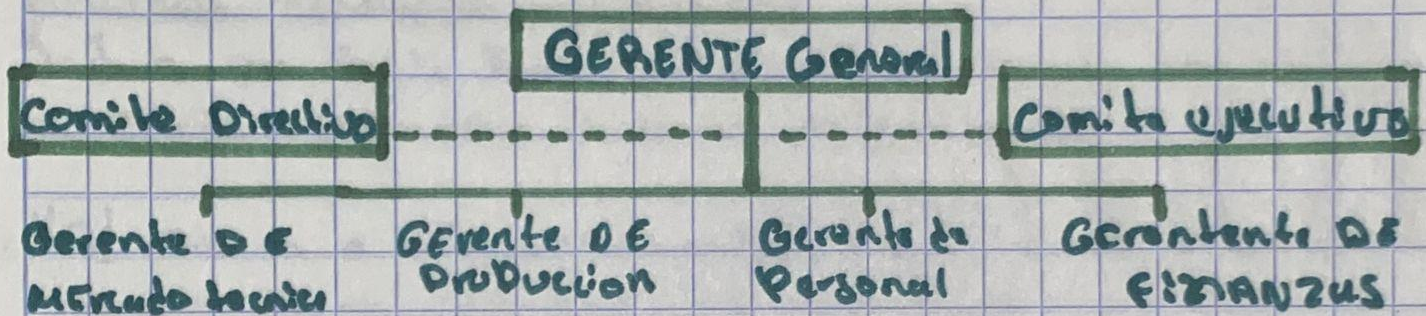 GERENTE General
Comite Directivo
Comite ejecutivo
Gerente DE
MErcadotecnica
GErente DE
ProDuccion
Gerente de
Personal
Gerontente DE
FiZANZUS